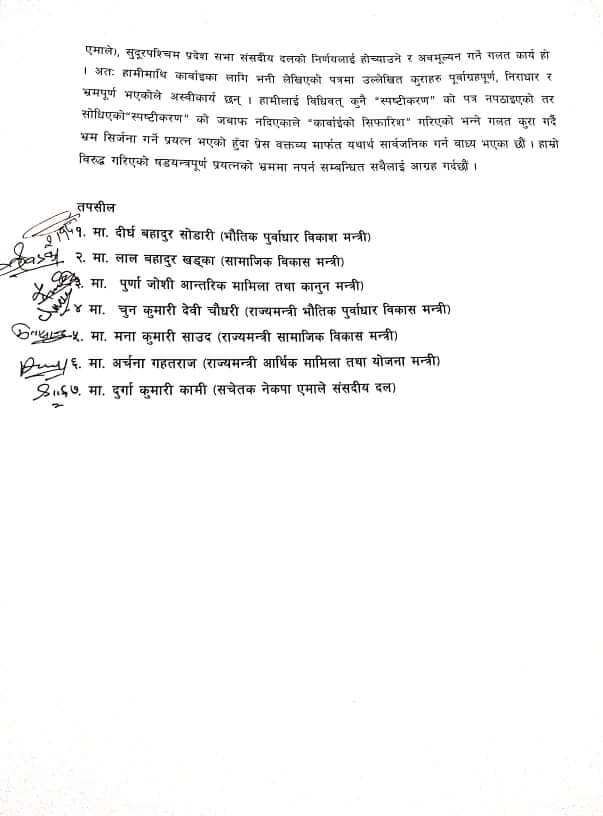 एमाले), सुदूरपश्चिम प्रदेश सभा संसदीय दलको निर्णयलाई होच्याउने र अवमूल्यन गर्ने गलत कार्य हो
। अतः हामीमाथि कार्वाइका लागि भनी लेखिएको पत्रमा उल्लेखित कुराहरु पूर्वाग्रहपूर्ण, निराधार र
भ्रमपूर्ण भएकोले अस्वीकार्य छन् । हामीलाई विधिवत् कुनै “स्पष्टीकरण” को पत्र नपठाइएको तर
सोधिएको“स्पष्टीकरण” को जवाफ नदिएकाले “कार्वाईको सिफारिश” गरिएको भन्ने गलत कुरा गर्दै
भ्रम सिर्जना गर्ने प्रयत्न भएको हुँदा प्रेस वक्तव्य मार्फत यथार्थ सार्वजनिक गर्न वाध्य भएका छौं । हाम्रो
विरुद्ध गरिएको षडयन्त्रपूर्ण प्रयत्नको भ्रममा नपर्न सम्बन्धित सवैलाई आग्रह गर्दछौं ।
तपसील
१. मा. दीर्घ बहादुर सोडारी (भौतिक पुर्वाधार विकाश मन्त्री)
२. मा. लाल बहादुर खड्का (सामाजिक विकास मन्त्री)
३. मा. पुर्णा जोशी आन्तरिक मामिला तथा कानुन मन्त्री)
४ मा. चुन कुमारी देवी चौधरी (राज्यमन्त्री भौतिक पुर्वाधार विकास मन्त्री)
५. मा. मना कुमारी साउद (राज्यमन्त्री सामाजिक विकास मन्त्री)
६. मा. अर्चना गहतराज (राज्यमन्त्री आर्थिक मामिला तथा योजना मन्त्री)
७. मा. दुर्गा कुमारी कामी (सचेतक नेकपा एमाले संसदीय दल)